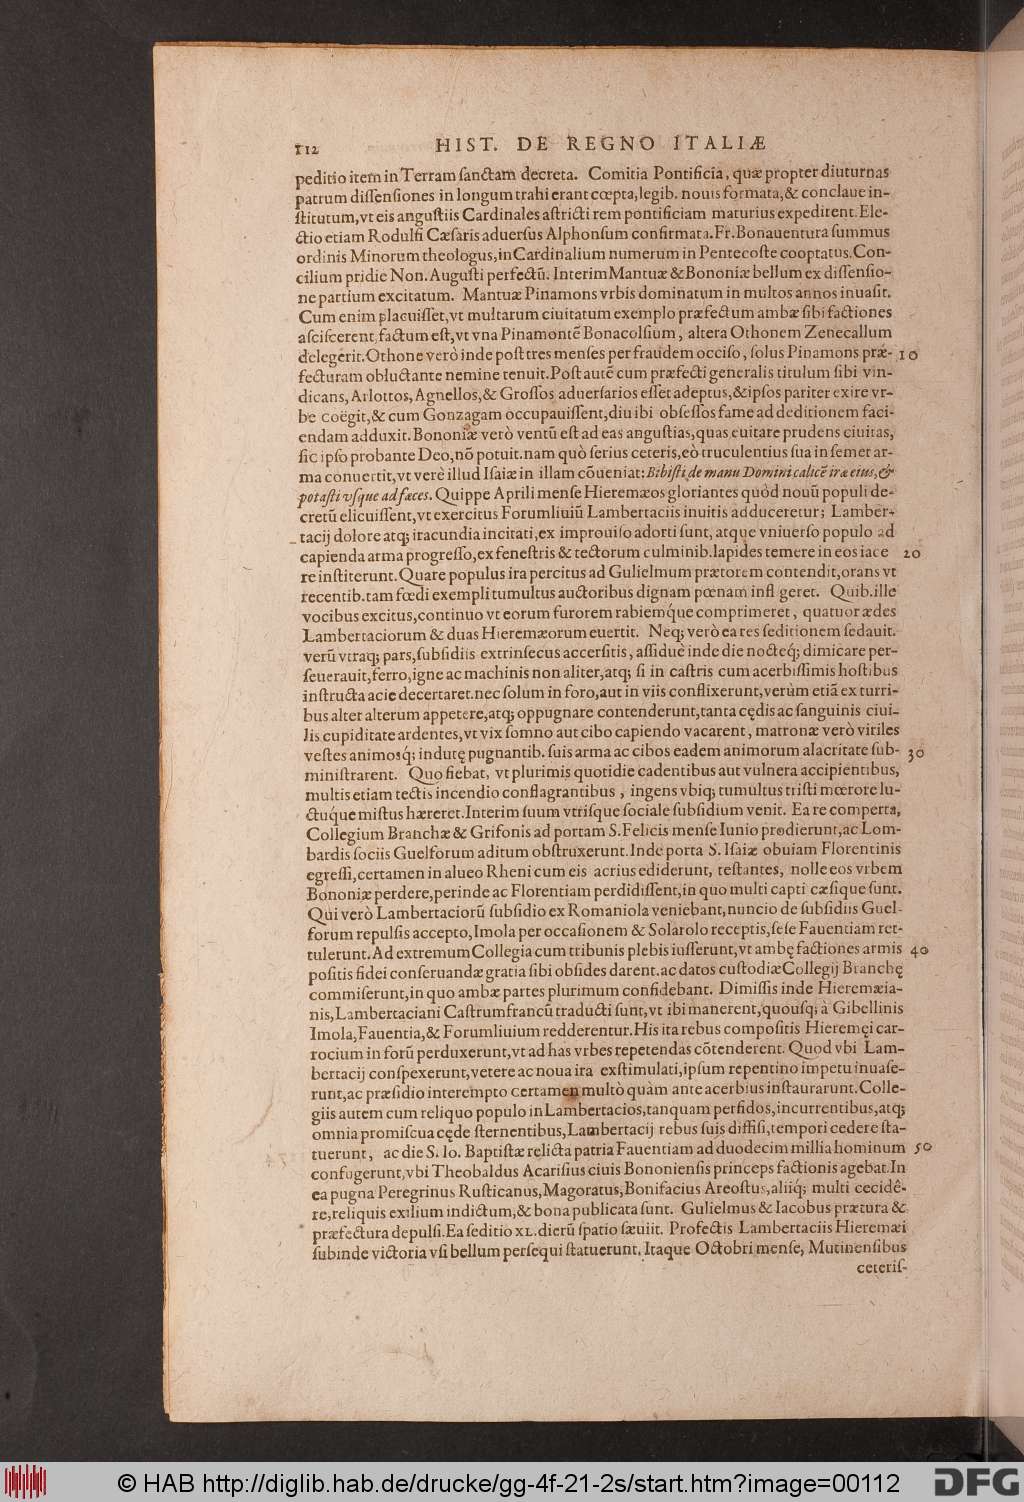 112 HIST. DE REGNO ITALIÆ
peditio item in Terram ſanctam decreta. Comitia Pontificia, quæ propter diuturnas
patrum diſſenſiones in longum trahi erant cœpta, legib. nouis formata, & conclaue in-
ſtitutum, vt eis anguſtiis Cardinales aſtricti rem pontificiam maturius expedirent. Ele-
ctio etiam Rodulfi Cæſaris aduerſus Alphonſum confirmata. Fr. Bonauentura ſummus
ordinis Minorum theologus, in Cardinalium numerum in Pentecoſte cooptatus. Con-
cilium pridie Non. Auguſti perfectũ. Interim Mantuæ & Bononiæ bellum ex diſſenſio-
ne partium excitatum. Mantuæ Pinamons vrbis dominatum in multos annos inuaſit.
Cum enim placuiſſet, vt multarum ciuitatum exemplo præfectum ambæ ſibi factiones
aſciſcerent, factum eſt, vt vna Pinamontẽ Bonacolſium, altera Othonem Zenecallum
delegerit. Othone verò inde poſt tres menſes per fraudem occiſo, ſolus Pinamons præ- 10
fecturam obluctante nemine tenuit. Poſt autẽ cum præfecti generalis titulum ſibi vin-
dicans, Arlottos, Agnellos, & Groſſos aduerſarios eſſet adeptus, & ipſos pariter exire vr-
be coëgit, & cum Gonzagam occupauiſſent, diu ibi obſeſſos fame ad deditionem faci-
endam adduxit. Bononiæ verò ventũ eſt ad eas anguſtias, quas euitare prudens ciuitas,
ſic ipſo probante Deo, nõ potuit. nam quò ſerius ceteris, eò truculentius ſua in ſemet ar-
ma conuertit, vt verè illud Iſaiæ in illam cõueniat: Bibiſti de manu Domini calicẽ iræ eius, &
potaſti vſque ad fæces. Quippe Aprili menſe Hieremæos gloriantes quòd nouũ populi de-
cretũ elicuiſſent, vt exercitus Forumliuiũ Lambertaciis inuitis adduceretur; Lamber-
tacij dolore atq; iracundia incitati, ex improuiſo adorti ſunt, atque vniuerſo populo ad
capienda arma progreſſo, ex feneſtris & tectorum culminib. lapides temere in eos iace 20
re inſtiterunt. Quare populus ira percitus ad Gulielmum prætorem contendit, orans vt
recentib. tam fœdi exempli tumultus auctoribus dignam pœnam infl geret. Quib. ille
vocibus excitus, continuo vt eorum furorem rabiemq́ue comprimeret, quatuor ædes
Lambertaciorum & duas Hieremæorum euertit. Neq; verò ea res ſeditionem ſedauit.
verũ vtraq; pars, ſubſidiis extrinſecus accerſitis, aſſiduè inde die nocteq́; dimicare per-
ſeuerauit, ferro, igne ac machinis non aliter, atq; ſi in caſtris cum acerbiſſimis hoſtibus
inſtructa acie decertaret. nec ſolum in foro, aut in viis conflixerunt, verùm etiã ex turri-
bus alter alterum appetere, atq; oppugnare contenderunt, tanta cędis ac ſanguinis ciui-
lis cupiditate ardentes, vt vix ſomno aut cibo capiendo vacarent, matronæ verò viriles
veſtes animosq́; indutę pugnantib. ſuis arma ac cibos eadem animorum alacritate ſub- 30
miniſtrarent. Quo fiebat, vt plurimis quotidie cadentibus aut vulnera accipientibus,
multis etiam tectis incendio conflagrantibus, ingens vbiq; tumultus triſti mœrore lu-
ctuq́ue miſtus hæreret. Interim ſuum vtriſque ſociale ſubſidium venit. Ea re comperta,
Collegium Branchæ & Grifonis ad portam S. Felicis menſe Iunio prodierunt, ac Lom-
bardis ſociis Guelforum aditum obſtruxerunt. Inde porta S. Iſaiæ obuiam Florentinis
egreſſi, certamen in alueo Rheni cum eis acrius ediderunt, teſtantes, nolle eos vrbem
Bononiæ perdere, perinde ac Florentiam perdidiſſent, in quo multi capti cæſique ſunt.
Qui verò Lambertaciorũ ſubſidio ex Romaniola veniebant, nuncio de ſubſidiis Guel-
forum repulſis accepto, Imola per occaſionem & Solarolo receptis, ſeſe Fauentiam ret-
tulerunt. Ad extremum Collegia cum tribunis plebis iuſſerunt, vt ambę factiones armis 40
poſitis fidei conſeruandæ gratia ſibi obſides darent. ac datos cuſtodiæ Collegij Branchę
commiſerunt, in quo ambæ partes plurimum confidebant. Dimiſſis inde Hieremæia-
nis, Lambertaciani Caſtrumfrancũ traducti ſunt, vt ibi manerent, quouſq; à Gibellinis
Imola, Fauentia, & Forumliuium redderentur. His ita rebus compoſitis Hieremęi car-
rocium in forũ perduxerunt, vt ad has vrbes repetendas cõtenderent. Quod vbi Lam-
bertacij conſpexerunt, vetere ac noua ira exſtimulati, ipſum repentino impetu inuaſe-
runt, ac præſidio interempto certamen multò quàm ante acerbius inſtaurarunt. Colle-
giis autem cum reliquo populo in Lambertacios, tanquam perfidos, incurrentibus, atq;
omnia promiſcua cęde ſternentibus, Lambertacij rebus ſuis diffiſi, tempori cedere ſta-
tuerunt, ac die S. Io. Baptiſtæ relicta patria Fauentiam ad duodecim millia hominum 50
confugerunt, vbi Theobaldus Acariſius ciuis Bononienſis princeps factionis agebat. In
ea pugna Peregrinus Ruſticanus, Magoratus, Bonifacius Areoſtus, aliiq; multi cecidê-
re, reliquis exilium indictum, & bona publicata ſunt. Gulielmus & Iacobus prætura &
præfectura depulſi. Ea ſeditio XL. dierũ ſpatio ſæuiit. Profectis Lambertaciis Hieremæi
ſubinde victoria vſi bellum perſequi ſtatuerunt. Itaque Octobri menſe, Mutinenſibus
ceteriſ-
© HAB http://diglib.hab.de/drucke/gg-4f-21-2s/start.htm?image=00112 DFG